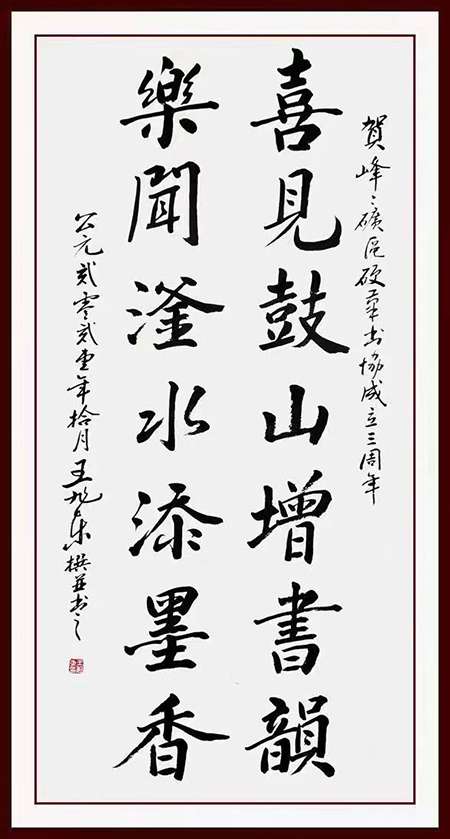 賀峰〻礦區硬筆书協成立三周年
喜見鼓山增書韻
樂聞滏水添墨香
公元貳零貳壹年拾月王旭东撰並书之